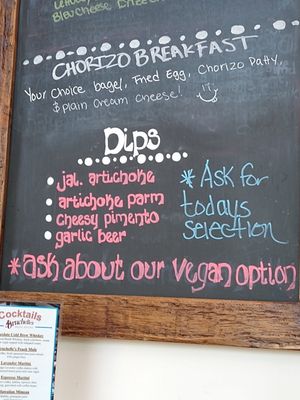 CHORIZO BREAKFAST
Your choice bagel, Fried Egg, Chorizo Patty,
$ plain cream cheese!
Dips
• jal. artichoke
• artichoke parm
• cheesy pimento
• garlic beer
* Ask for
todays
selection
*ask about our vegan option
Cocktails